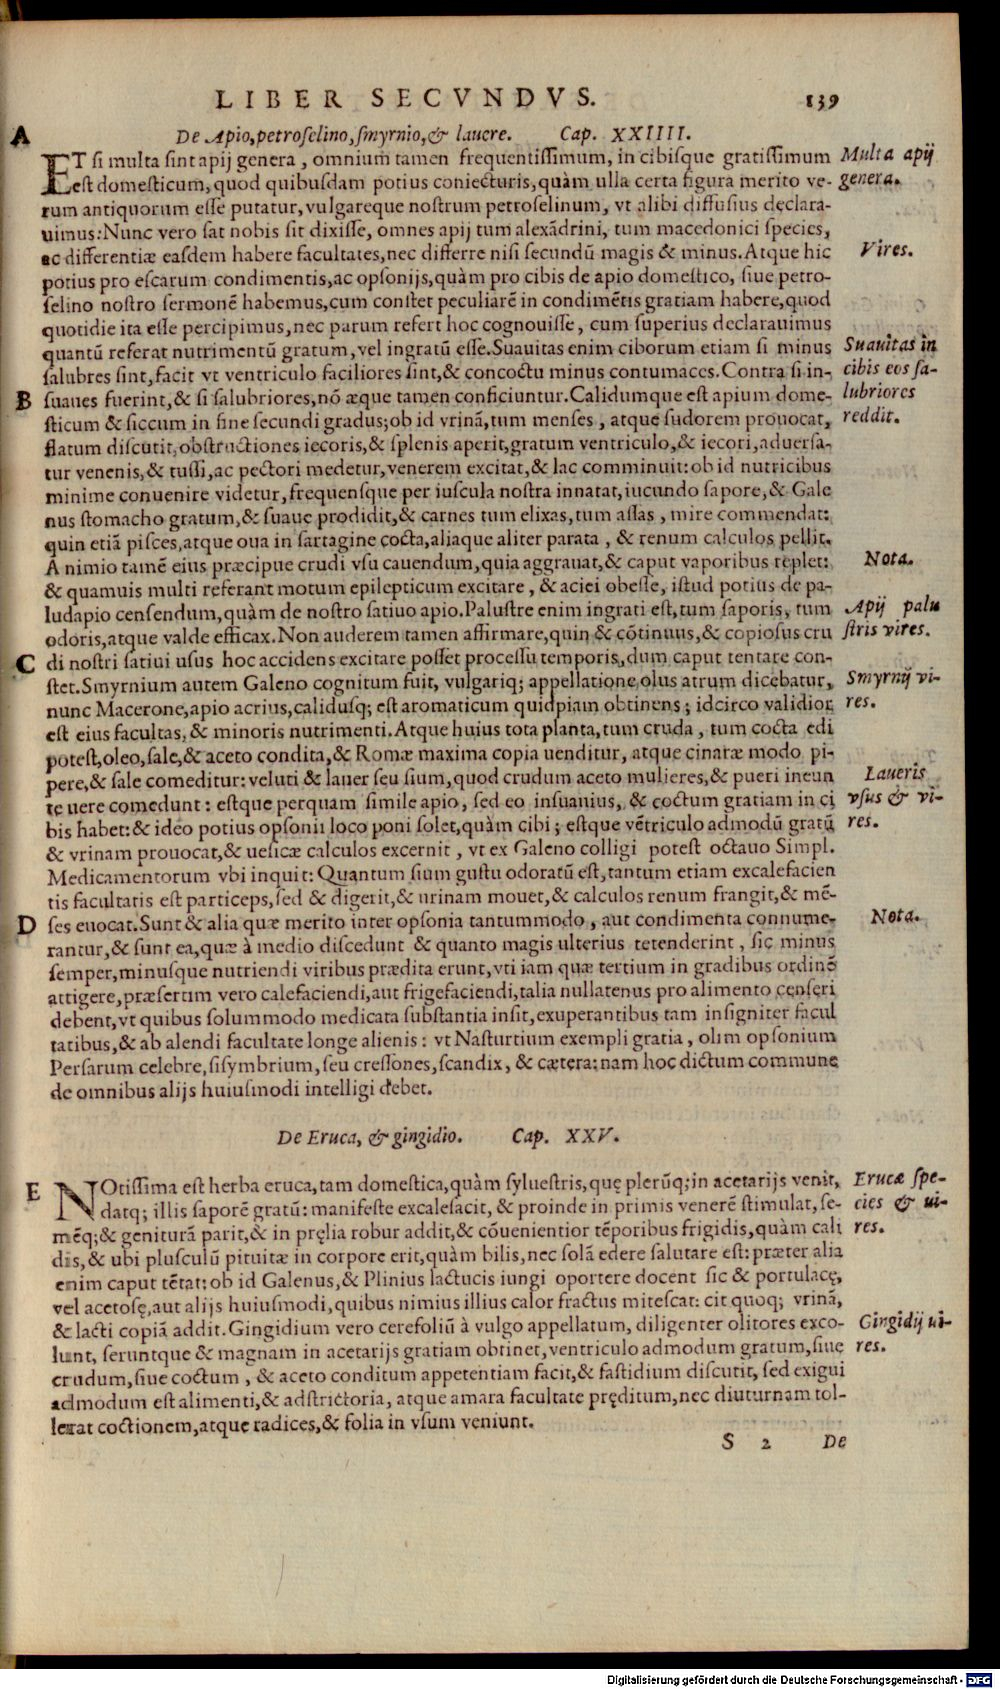 LIBER SECVNDVS. 139
A De Apio, petroselino, smyrnio, & lauere. Cap. XXIIII.
ET si multa sint apij genera, omnium tamen frequentissimum, in cibisque gratissimum Multa apij
est domesticum, quod quibusdam potius coniecturis, quàm ulla certa figura merito ve- genera.
rum antiquorum esse putatur, vulgareque nostrum petroselinum, vt alibi diffusius declara-
uimus: Nunc vero sat nobis sit dixisse, omnes apij tum alexãdrini, tum macedonici species,
ac differentiæ easdem habere facultates, nec differre nisi secundũ magis & minus. Atque hic Vires.
potius pro escarum condimentis, ac opsonijs, quàm pro cibis de apio domestico, siue petro-
selino nostro sermonẽ habemus, cum constet peculiarẽ in condimẽtis gratiam habere, quod
quotidie ita esse percipimus, nec parum refert hoc cognouisse, cum superius declarauimus
quantũ referat nutrimentũ gratum, vel ingratũ esse. Suauitas enim ciborum etiam si minus Suauitas in
salubres sint, facit vt ventriculo faciliores sint, & concoctu minus contumaces. Contra si in- cibis eos sa-
B suaues fuerint, & si salubriores, nõ æque tamen conficiuntur. Calidumque est apium dome- lubriores
sticum & siccum in fine secundi gradus; ob id vrinã, tum menses, atque sudorem prouocat, reddit.
flatum discutit, obstructiones iecoris, & splenis aperit, gratum ventriculo, & iecori, aduersa-
tur venenis, & tussi, ac pectori medetur, venerem excitat, & lac comminuit: ob id nutricibus
minime conuenire videtur, frequensque per iuscula nostra innatat, iucundo sapore, & Gale
nus stomacho gratum, & suaue prodidit, & carnes tum elixas, tum assas, mire commendat:
quin etiã pisces, atque oua in sartagine cocta, aliaque aliter parata, & renum calculos pellit.
A nimio tamẽ eius præcipue crudi vsu cauendum, quia aggrauat, & caput vaporibus replet: Nota.
& quamuis multi referant motum epilepticum excitare, & aciei obesse, istud potius de pa-
ludapio censendum, quàm de nostro satiuo apio. Palustre enim ingrati est, tum saporis, tum Apij palu
odoris, atque valde efficax. Non auderem tamen affirmare, quin & cõtinuus, & copiosus cru stris vires.
C di nostri satiui usus hoc accidens excitare posset processu temporis, dum caput tentare con-
stet. Smyrnium autem Galeno cognitum fuit, vulgariq; appellatione olus atrum dicebatur, Smyrnij vi-
nunc Macerone, apio acrius, calidusq; est aromaticum quidpiam obtinens; idcirco validior res.
est eius facultas, & minoris nutrimenti. Atque huius tota planta, tum cruda, tum cocta edi
potest, oleo, sale, & aceto condita, & Romæ maxima copia uenditur, atque cinaræ modo pi-
pere, & sale comeditur: veluti & lauer seu sium, quod crudum aceto mulieres, & pueri ineun Laueris
te uere comedunt: estque perquam simile apio, sed eo insuauius, & coctum gratiam in ci vsus & vi-
bis habet: & ideo potius opsonii loco poni solet, quàm cibi; estque vẽtriculo admodũ gratũ res.
& vrinam prouocat, & uesicæ calculos excernit, vt ex Galeno colligi potest octauo Simpl.
Medicamentorum vbi inquit: Quantum sium gustu odoratũ est, tantum etiam excalefacien
tis facultatis est particeps, sed & digerit, & urinam mouet, & calculos renum frangit, & mẽ-
D ses euocat. Sunt & alia quæ merito inter opsonia tantummodo, aut condimenta connume- Nota.
rantur, & sunt ea, quæ à medio discedunt & quanto magis ulterius tetenderint, sic minus
semper, minusque nutriendi viribus prædita erunt, vti iam quæ tertium in gradibus ordinẽ
attigere, præsertim vero calefaciendi, aut frigefaciendi, talia nullatenus pro alimento censeri
debent, vt quibus solummodo medicata substantia insit, exuperantibus tam insigniter facul
tatibus, & ab alendi facultate longe alienis: vt Nasturtium exempli gratia, olim opsonium
Persarum celebre, sisymbrium, seu cressiones, scandix, & cætera: nam hoc dictum commune
de omnibus alijs huiusmodi intelligi debet.
De Eruca, & gingidio. Cap. XXV.
E NOtissima est herba eruca, tam domestica, quàm syluestris, quę plerũq; in acetarijs venit, Erucæ spe-
datq; illis saporẽ gratũ: manifeste excalefacit, & proinde in primis venerẽ stimulat, se- cies & ui-
mẽq; & geniturã parit, & in pręlia robur addit, & cõuenientior tẽporibus frigidis, quàm cali res.
dis, & ubi plusculũ pituitæ in corpore erit, quàm bilis, nec solã edere salutare est: præter alia
enim caput tẽtat: ob id Galenus, & Plinius lactucis iungi oportere docent sic & portulacę,
vel acetosę, aut alijs huiusmodi, quibus nimius illius calor fractus mitescat: cit quoq; vrinã,
& lacti copiã addit. Gingidium vero cerefoliũ à vulgo appellatum, diligenter olitores exco- Gingidij ui-
lunt, seruntque & magnam in acetarijs gratiam obtinet, ventriculo admodum gratum, siue res.
crudum, siue coctum, & aceto conditum appetentiam facit, & fastidium discutit, sed exigui
admodum est alimenti, & adstrictoria, atque amara facultate pręditum, nec diuturnam tol-
lerat coctionem, atque radices, & folia in vsum veniunt.
S 2 De
Digitalisierung gefördert durch die Deutsche Forschungsgemeinschaft - DFG